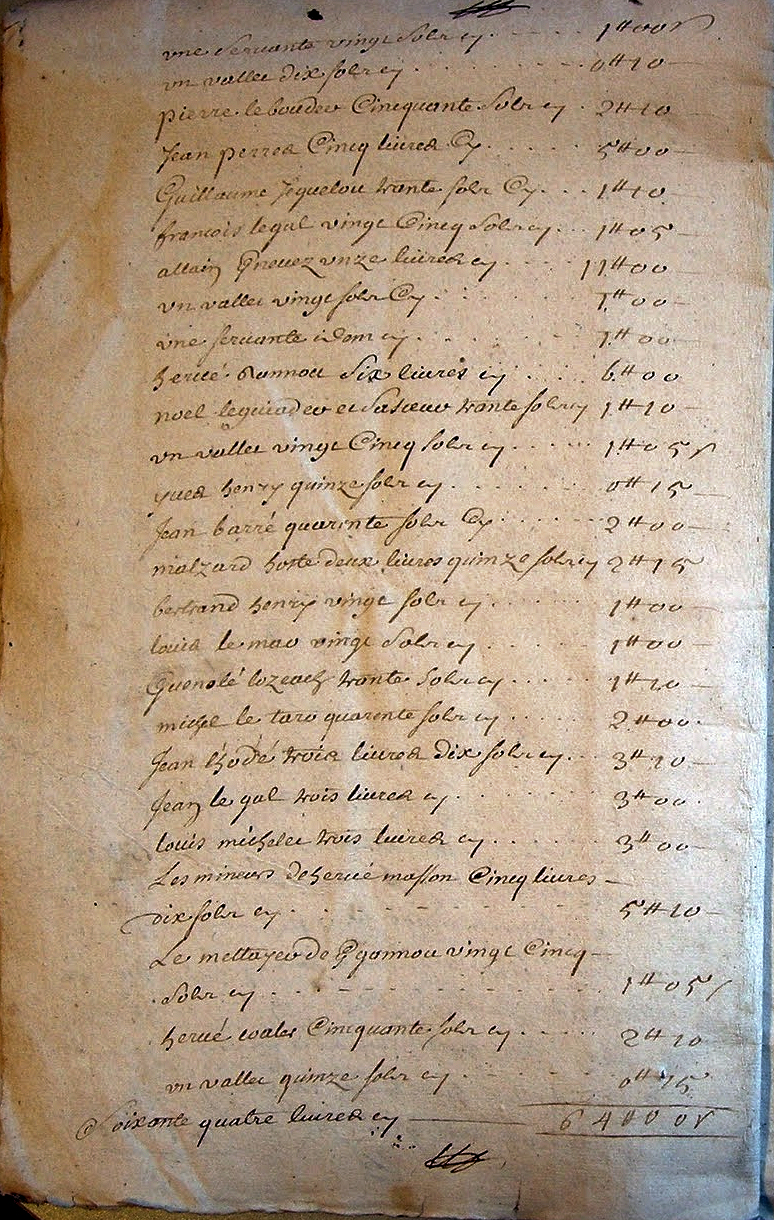 une servante vingt solz cy 1⁺⁺00 s
un vallet dix solz cy 0⁺⁺10
pierre le bouder Cincquante solz cy 2⁺⁺10
Jean perres Cincq livres Cy 5⁺⁺00
Guillaume Jequelou trante solz Cy 1⁺⁺10
francois le gal vingt Cincq solz cy 1⁺⁺05
allain unze livres cy 11⁺⁺00
un vallet vingt solz Cy 1⁺⁺00
une servante idem cy 1⁺⁺00
hervé Rannou Six livres cy 6⁺⁺00
noel le guiader et sa sœur trante solz cy 1⁺⁺10
un vallet vingt Cincq solz cy 1⁺⁺05 s
yves henry quinze solz cy 0⁺⁺15
Jean barré quarente solz Cy 2⁺⁺00
nialzard hoste deux livres quinze solz cy 2⁺⁺15
bertrand henry vingt solz cy 1⁺⁺00
louis le mao vingt solz cy 1⁺⁺00
Guenolé lozeach trante solz cy 1⁺⁺10
michel le taro quarente solz cy 2⁺⁺00
Jean l'hodé trois livres dix solz cy 3⁺⁺10
Jean le gal trois livres cy 3⁺⁺00
louis michelet trois livres cy 3⁺⁺00
Les mineurs de hervé masson Cincq livres
dix solz cy 5⁺⁺10
Le mettayer de vingt Cincq
solz cy 1⁺⁺05 s
hervé Cincquante solz cy 2⁺⁺10
un vallet quinze solz cy 0⁺⁺15
Soixante quatre livres cy 64⁺⁺00 s